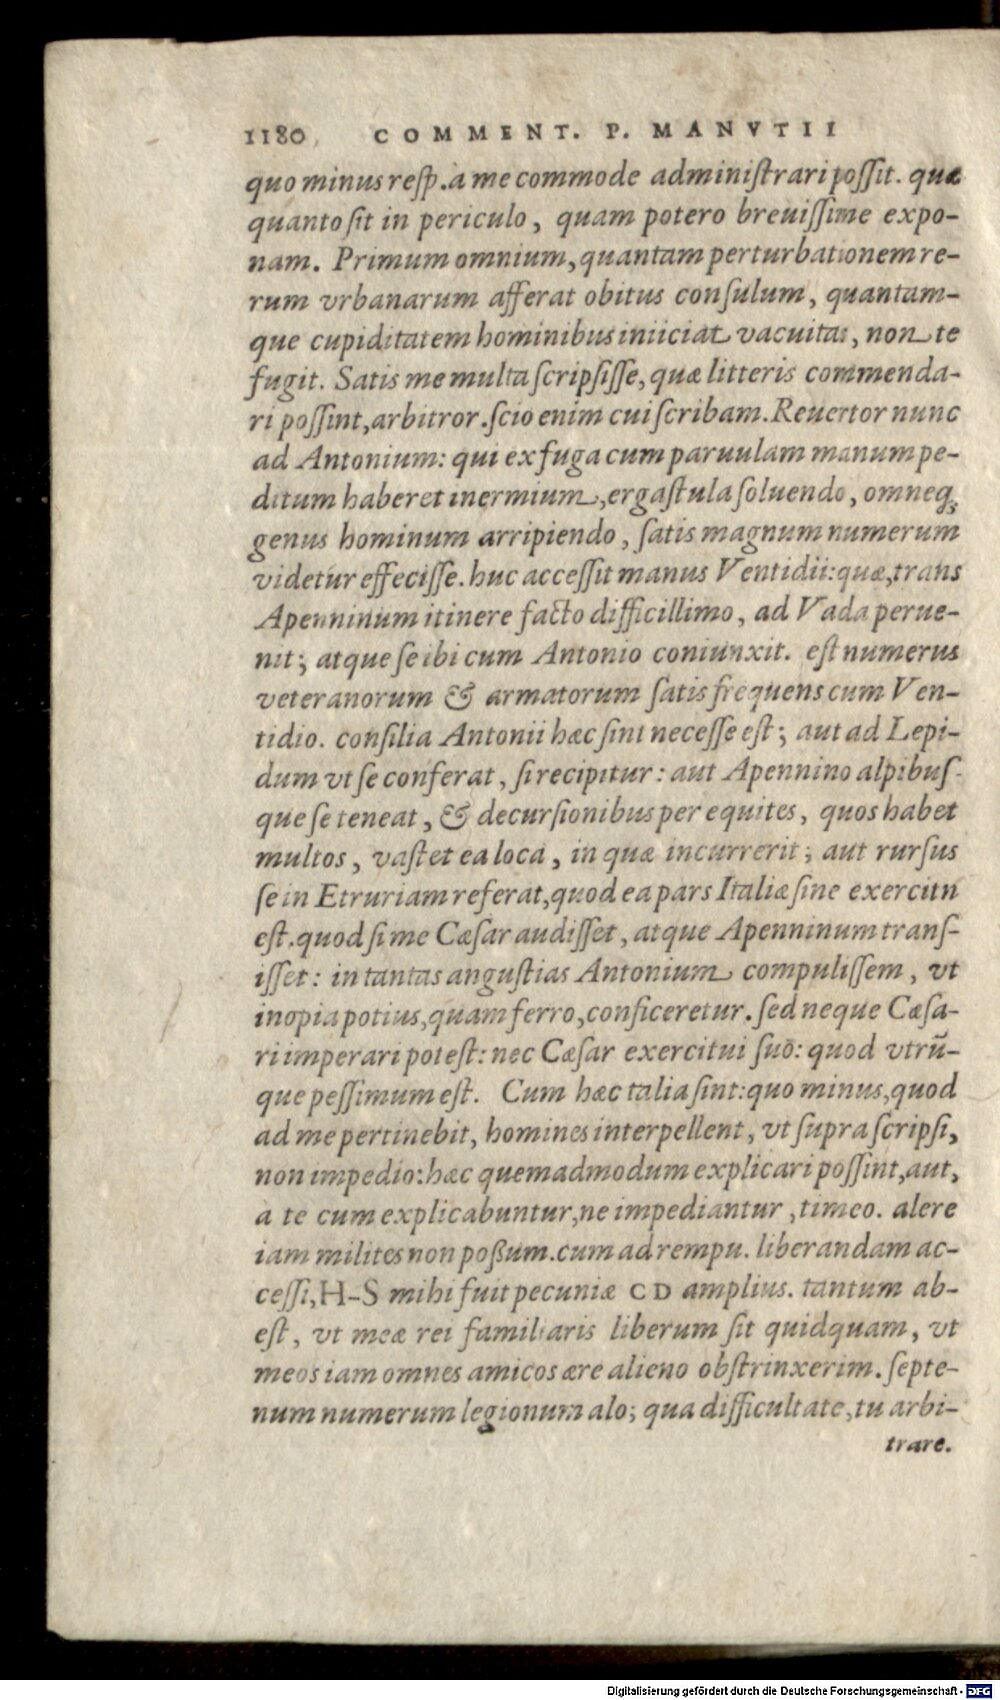 1180 COMMENT. P. MANVTII
quo minus resp. à me commode administrari possit. quæ
quanto sit in periculo, quam potero breuissime expo-
nam. Primum omnium, quantam perturbationem re-
rum vrbanarum afferat obitus consulum, quantam-
que cupiditatem hominibus iniiciat vacuitas, non te
fugit. Satis me multa scripsisse, quæ litteris commenda-
ri possint, arbitror. scio enim cui scribam. Reuertor nunc
ad Antonium: qui ex fuga cum paruulam manum pe-
ditum haberet inermium, ergastula soluendo, omneq;
genus hominum arripiendo, satis magnum numerum
videtur effecisse. huc accessit manus Ventidii: quæ, trans
Apenninum itinere facto difficillimo, ad Vada perue-
nit; atque se ibi cum Antonio coniunxit. est numerus
veteranorum & armatorum satis frequens cum Ven-
tidio. consilia Antonii hæc sint necesse est; aut ad Lepi-
dum vt se conferat, si recipitur: aut Apennino alpibus-
que se teneat, & decursionibus per equites, quos habet
multos, vastet ea loca, in quæ incurrerit; aut rursus
se in Etruriam referat, quod ea pars Italiæ sine exercitu
est. quod si me Cæsar audisset, atque Apenninum trans-
isset: in tantas angustias Antonium compulissem, vt
inopia potius, quam ferro, conficeretur. sed neque Cæsa-
ri imperari potest: nec Cæsar exercitui suo: quod vtrū-
que pessimum est. Cum hæc talia sint: quo minus, quod
ad me pertinebit, homines interpellent, vt supra scripsi,
non impedio: hæc quemadmodum explicari possint, aut,
a te cum explicabuntur, ne impediantur, timeo. alere
iam milites non poßum. cum ad rempu. liberandam ac-
cessi, H-S mihi fuit pecuniæ CD amplius. tantum ab-
est, vt meæ rei familiaris liberum sit quidquam, vt
meos iam omnes amicos ære alieno obstrinxerim. septe-
num numerum legionum alo; qua difficultate, tu arbi-
trare.
Digitalisierung gefördert durch die Deutsche Forschungsgemeinschaft - DFG